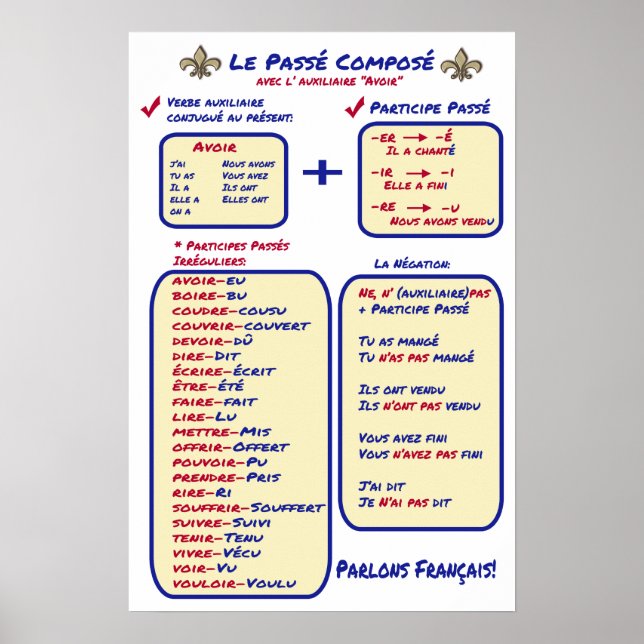 Le Passé Composé
avec l' auxiliaire "Avoir"
Verbe auxiliaire
conjugué au présent:
Avoir
j'ai
tu as
il a
elle a
on a
Nous avons
Vous avez
Ils ont
Elles ont
+
Participe Passé
-er → -é
Il a chanté
-ir → -i
Elle a fini
-re → -u
Nous avons vendu
* Participes Passés
Irréguliers:
avoir-eu
boire-bu
coudre-cousu
couvrir-couvert
devoir-dû
dire-Dit
écrire-écrit
être-été
faire-fait
lire-Lu
mettre-Mis
offrir-Offert
pouvoir-Pu
prendre-Pris
rire-Ri
souffrir-Souffert
suivre-Suivi
tenir-Tenu
vivre-Vécu
voir-Vu
vouloir-Voulu
La Négation:
Ne, n' (auxiliaire)pas
+ Participe Passé
Tu as mangé
Tu n'as pas mangé
Ils ont vendu
Ils n'ont pas vendu
Vous avez fini
Vous n'avez pas fini
J'ai dit
Je n'ai pas dit
Parlons Français!